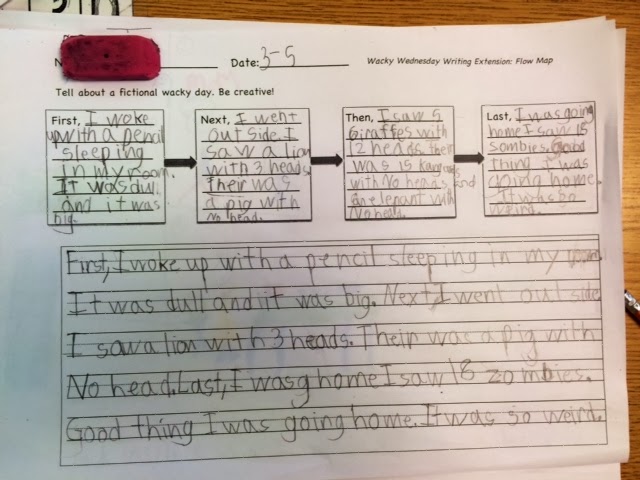 Date: 3-5
Wacky Wednesday Writing Extension: Flow Map
Tell about a fictional wacky day. Be creative!
First, I woke
up with a pencil
sleeping
in my room.
It was dul.
and it was
big.
Next, I went
out side. I
saw a lion
with 3 heads.
Their was
a pig with
no head.
Then, I saw 5
Giraffes with
12 heads. their
was 15
with No heads and
an with
No head.
Last, I was going
home I saw 18
sombies. Good
thing I was
going home.
It was so
weird.
First, I woke up with a pencil sleeping in my room.
It was dull and iit was big. Next I went out side
I saw a lion with 3 heads. Their was a pig with
No head. Last, I was g home I saw 18 zombies.
Good thing I was going home. It was so weird.